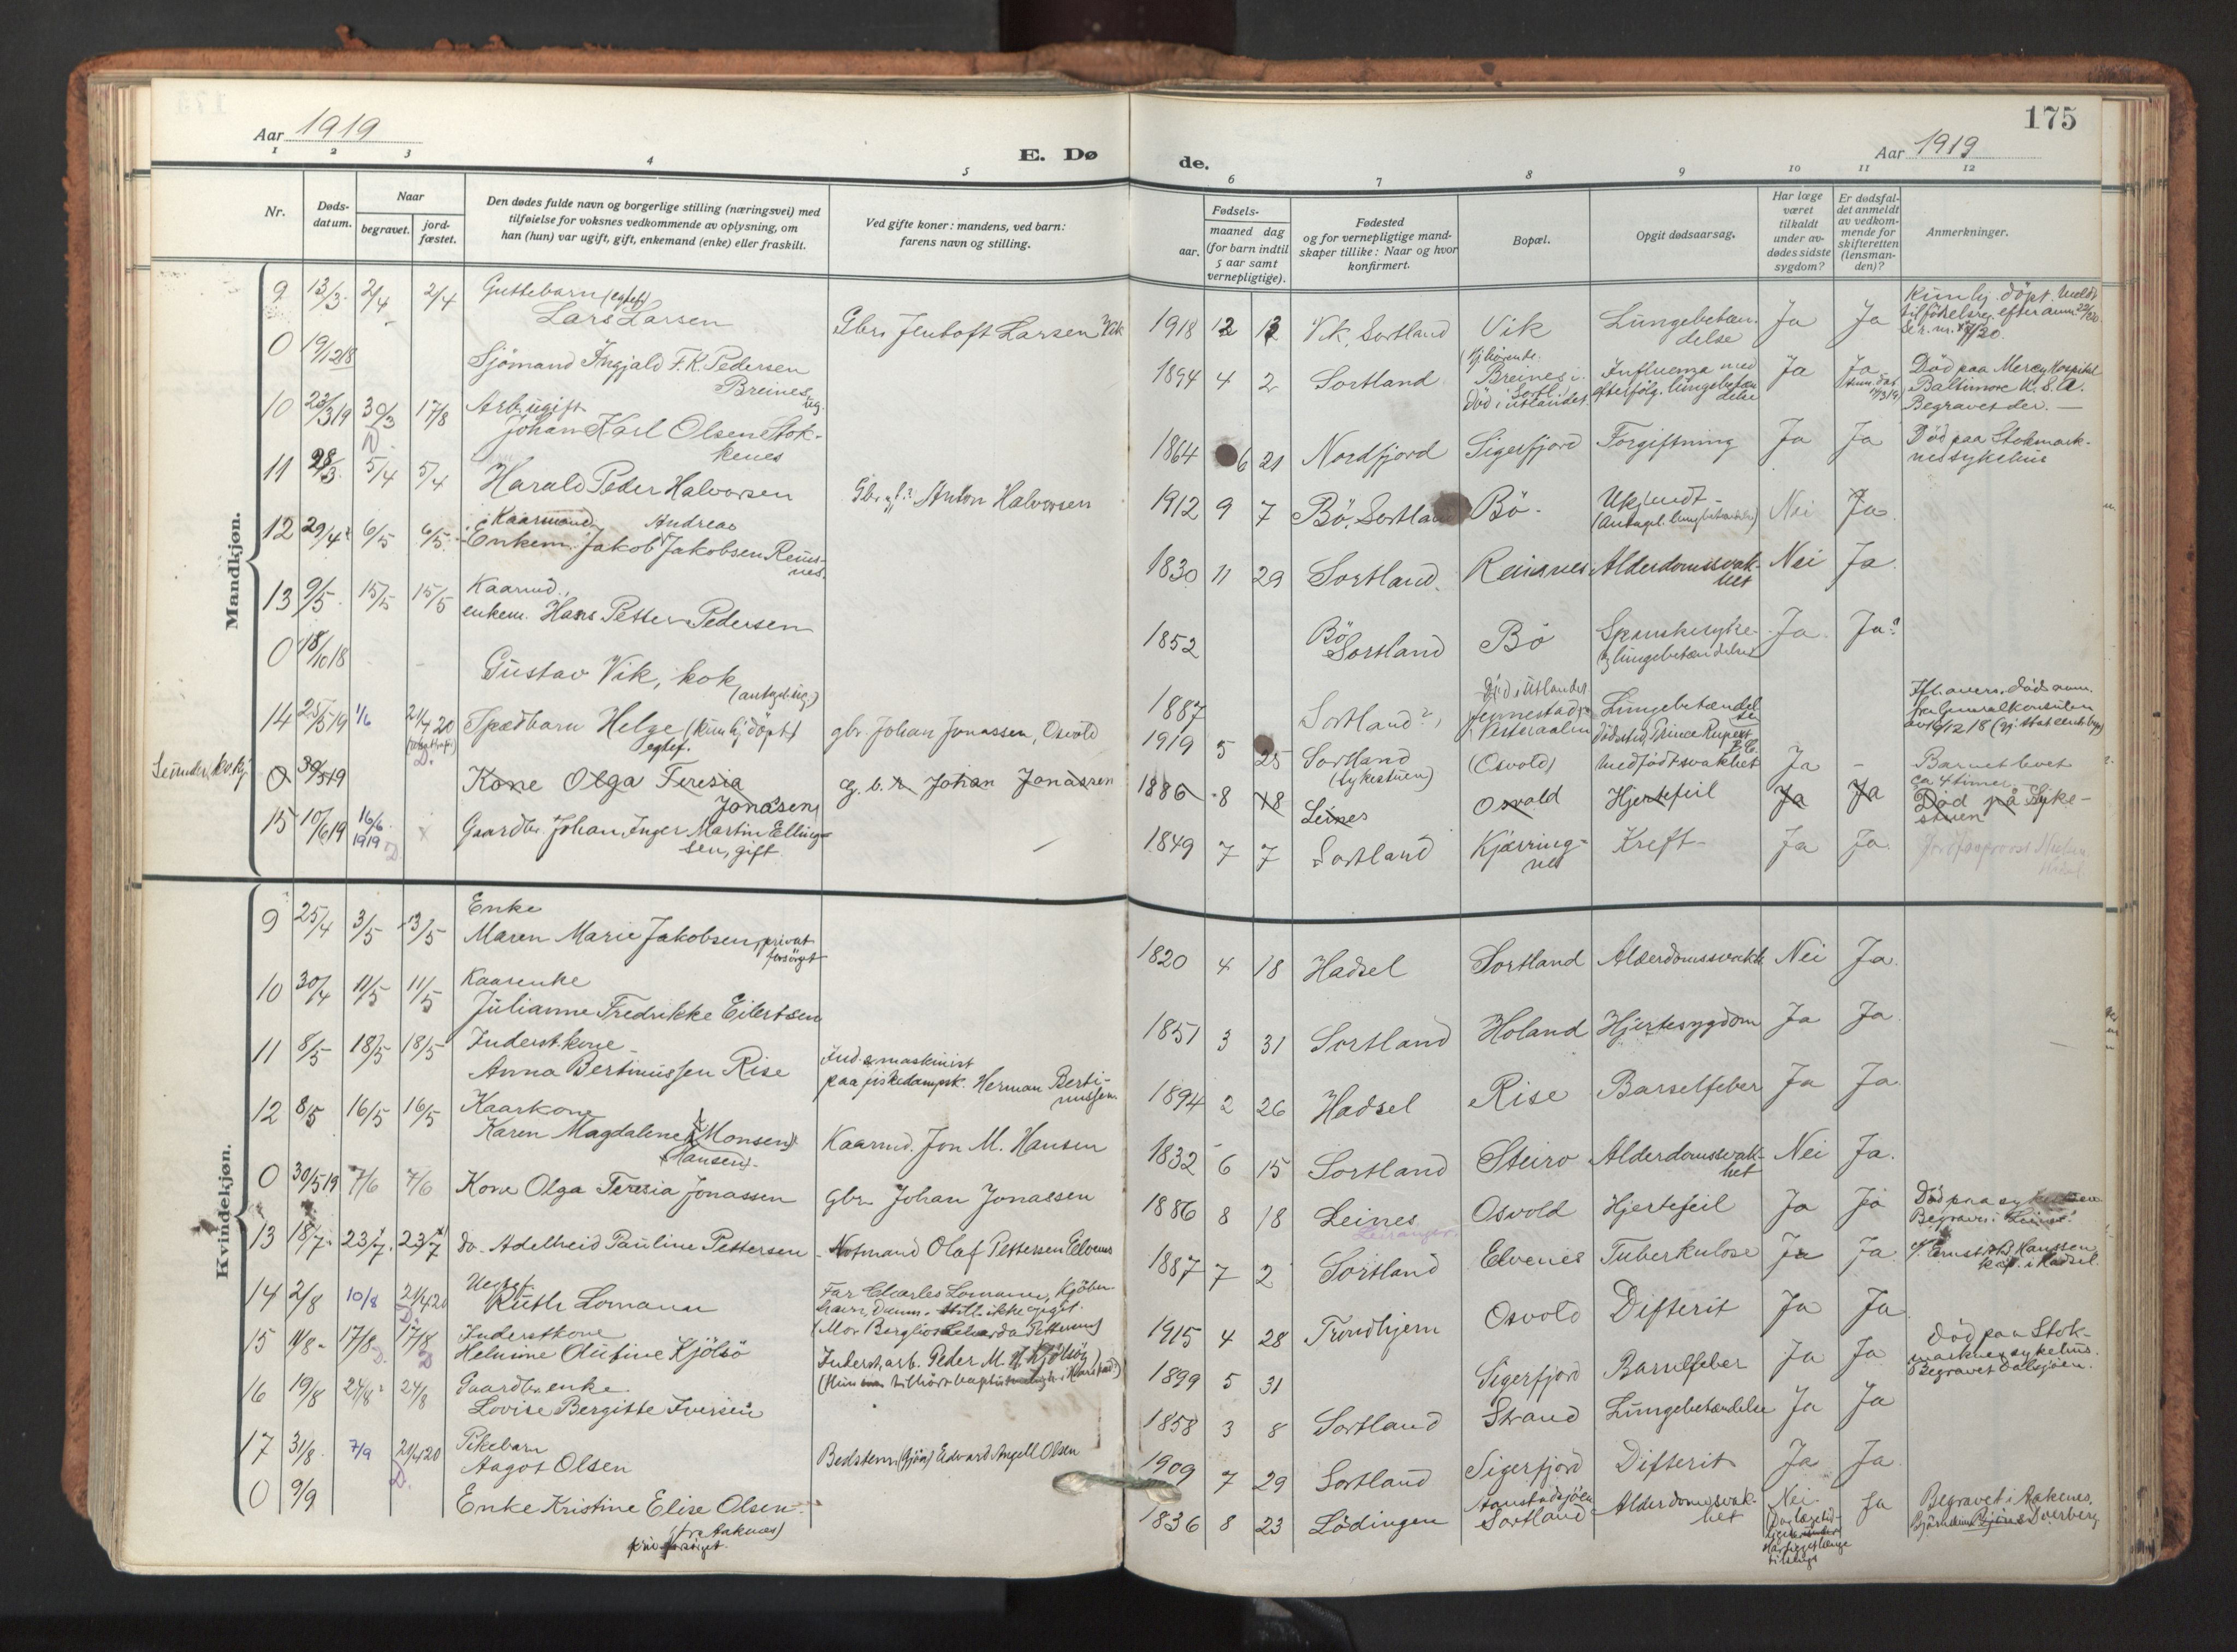 175
Aar 1919
E. Dø
de.
Aar 1919
1 2 3 4 5 6 7 8 9 10 11 12
Nr.
Døds-
datum.
Naar
begravet.
jord-
fæstet.
Den dødes fulde navn og borgerlige stilling (næringsvei) med
tilføielse for voksnes vedkommende av oplysning, om
han (hun) var ugift, gift, enkemand (enke) eller fraskilt.
Ved gifte koner: mandens, ved barn:
farens navn og stilling.
Fødsels-
aar.
maaned dag
(for barn indtil
5 aar samt
vernepligtige).
Fødested
og for vernepligtige mand-
skaper tillike: Naar og hvor
konfirmert.
Bopæl.
Opgit dødsaarsag.
Har læge
været
tilkaldt
under av-
dødes sidste
sygdom?
Er dødsfal-
det anmeldt
av vedkom-
mende for
skifteretten
(lensman-
den)?
Anmerkninger.
Mandkjøn.
9 13/3 2/4 2/4 Guttebarn (egtef)
Lars Larsen
Gbr. Jentoft Larsen Vik
1918 12 12 Vik, Sortland Vik Lungebetæn-
delse Ja Ja
Kun hj. döpt.
0 19/12 18 Sjömand Ingjald F.K. Pedersen
Breines, ug.
1894 4 2 Sortland Hjhörende.
Breines i Sortl.
Död i utlandet.
Influenza med
efterfölg. lungebetæn
delse
Ja Ja
Död paa Mercy Hospital
Baltimore U.S.A.
Begravet der. —
10 23/3 19 30/3 17/8 Arb. ugift
Johan Karl Olsen Stok-
kenes
1864 6 21 Nordfjord Sigerfjord Forgiftning Ja Ja
Död paa Stokmark-
nes sykehus
11 28/3 5/4 5/4 Harald Peder Halvorsen
Gbr. Anton Halvorsen
1912 9 7 Bö, Sortland Bö. Ukjendt -
(Antagel. lungebetændelse) Nei Ja.
12 29/4 6/5 6/5 Kaarmand Andreas
Enkem. Jakob Jakobsen Reins-
nes.
1830 11 29 Sortland. Reinsnes Alderdomssvak-
het Nei Ja
13 9/5 15/5 15/5 Kaarmd.,
enkem. Hans Petter Pedersen
1852 Bö
Sortland Bö Spanskesyke
og lungebetændelse Ja Ja
0 18/10 18 Gustav Vik, kok
(antagl. ug.)
1887 Sortland?, Död i utlandet
Jennestad
Vesteraalen
Lungebetændel
se
Dödssted, Prince Rupert
B.C.
14 25/5 19 1/6 21/4 20 Spædbarn Helge (kun hj. döpt)
egtef.
gbr. Johan Jonassen, Osvold
1919 5 25 Sortland
(Sykestuen) (Osvold) Medfödt svakhet Ja -
Barnet levet
ca 4 timer.
0 30/5 19 Kone Olga Teresia
Jonassen
g. b. r. Johan Jonassen
1886 8 18 Leines Osvold Hjertefeil Ja Ja
Død på Syke-
stuen
15 10/6 19 16/6
1919 Gaardbr. Johan Inger Martin Elling-
sen, gift
1849 7 7 Sortland Kjærring-
nes Kreft - Ja Ja.
Kvindekjøn.
9 25/4 3/5 13/5 Enke
Maren Marie Jakobsen, privat
forsörget
1820 4 18 Hadsel Sortland Alderdomssvakh. Nei Ja.
10 30/4 11/5 11/5 Kaarenke
Julianne Fredrikke Eilertsen
1851 3 31 Sortland Holand Hjertesygdom Ja Ja
11 8/5 18/5 18/5 Inderst. kone
Anna Bertinussen Rise
Ind. & maskinist
paa fiskedampsk. Herman Berti-
nussen
1894 2 26 Hadsel Rise Barselfeber Ja Ja.
12 8/5 16/5 16/5 Kaarkone
Karen Magdalene (Monsen)
Hansen.
Kaarmd. Jon M. Hansen
1832 6 15 Sortland Steiro Alderdomssvak-
het Nei Ja.
0 30/5 19 7/6 7/6 Kone Olga Teresia Jonassen
Gbr. Johan Jonassen
1886 8 18 Leines
Leiranger Osvold Hjertefeil Ja Ja
Död paa sykestuen
Begravet i Leines.
13 18/7 23/7. 23/7 do. Adelheid Pauline Pettersen
Notmand Olaf Pettersen Elvenes
1887 7 2 Sortland Elvenes Tuberkulose Ja Ja
14 2/8 10/8 21/4 20 Uegtef.
Ruth Lomann
Far Charles Lomann, Kjöben-
havn, Danm. Still. ikke opgit.
1915 4 28 Trondhjem Osvold Difterit Ja Ja
15 11/8 17/8 17/8 Inderstkone
Helmine Olufine Kjölsö
Inderst, arb. Peder M. Kjölsöy
1899 5 31 Sigerfjord Barselfeber Ja Ja
Död paa Stok-
marknes sykehus.
16 19/8 24/8 24/8 Gaardbr. enke.
Lovise Bergitte Iversen
1858 3 8 Sortland Strand Lungebetændelse Ja Ja
17 31/8 7/9 21/4 20 Pikebarn
Aagot Olsen
Bedstem. Edvard Angell Olsen
1909 7 29 Sortland Sigerfjord Difterit Ja Ja
0 9/9 Enke Kristine Elise Olsen
(fra Aaknes)
priv. forsörget.
1836 8 23 Lödingen Sortland Alderdomssvak-
het Nei Ja
Begravet i Aaknes,